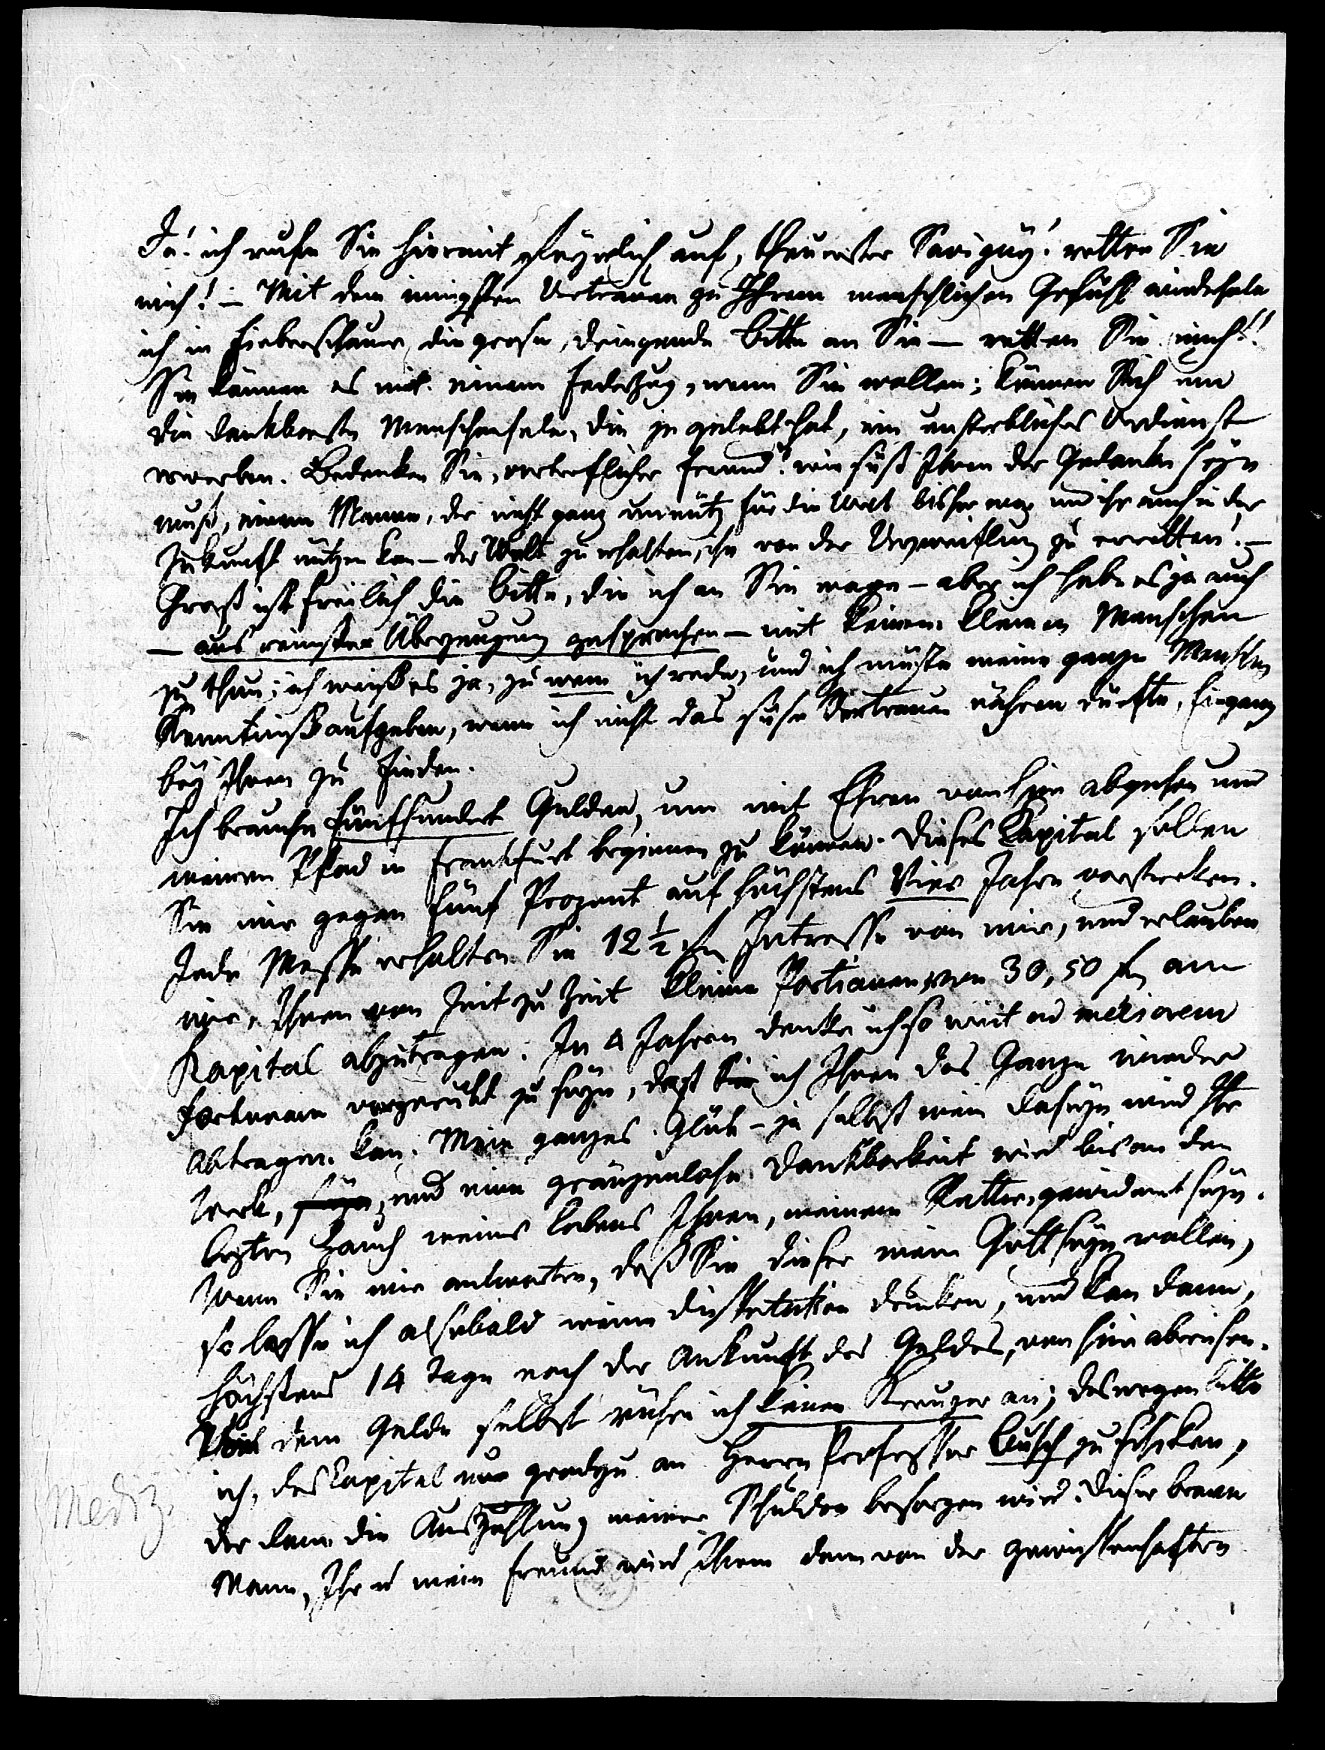 Ja! ich rufe Sie hiermit feyerlich auf, theuerster Savigny! retten Sie
mich! – Mit dem innigsten Vertrauen zu Ihrem menschlichen Gefühl wiederhole
ich in Fieberschauer die grose, dringende bitte an Sie – retten Sie mich!!
Sie können es mit einem Federzug, wenn Sie wollen; können Sich um
die dankbarste Menschenseele, die je gelebt hat, ein unsterbliches Verdienst
erwerben. Bedenken Sie, vortreflicher Freund! wie süß Ihnen der Gedanke seyn
muß, einen Mann, der nicht ganz unnütz für die Welt bisher war und ihr auch in der
Zukunft nützen kan – der Welt zu erhalten, ihn von der Verzweiflung zu erretten! –
Groß ist freilich die bitte, die ich an Sie wage – aber ich habe es ja auch
– aus reinster Überzeugung gesprochen – mit keinem kleinen Menschen
zu thun; ich weiß es ja, zu wem ich rede, und ich müste meine ganze Menschen
Kenntniß aufgeben, wenn ich nicht das süse Vertrauen nähren dürfte, Eingang
bey Ihnen zu finden.
Ich brauche fünfhundert Gulden, um mit Ehren von hier abgehen und
meinen Pfad in Frankfurt beginnen zu können. Dieses Kapital sollen
Sie mir gegen fünf Prozent auf höchstens Vier Jahre vorstrecken.
Jede Messe erhalten Sie 12 ½ fl Intresse von mir, und erlauben
mir, Ihnen von Zeit zu Zeit kleine Portionen von 30, 50 fl am
Kapital abzutragen. In 4 Jahren denke ich so weit ad meliorem
fortunam vorgerückt zu seyn, daß ich Ihnen das Ganze wieder
abtragen kan. Mein ganzes Glück – ja selbst mein Daseyn wird Ihr
Werk, und eine gränzenlose Dankbarkeit wird bis an den
lezten Hauch meines lebens Ihnen, meinem Retter, gewidmet seyn.
Wenn Sie mir antworten, daß Sie dieser mein Gott seyn wollen,
so lasse ich alsobald meine Disputation drucken, und kan dann,
höchstens 14 Tage nach der Ankunft des Geldes, von hier abreisen.
Von dem Gelde selbst rühre ich keinen Kreuzer an; deswegen bitte
ich, das Capital nur gradzu an Herrn Professor Busch zu schicken,
der dann die Auszahlung meiner Schulden besorgen wird. Dieser brave
Mediz.
Mann, Ihr u mein Freund wird Ihnen dann von der gewissenhaften